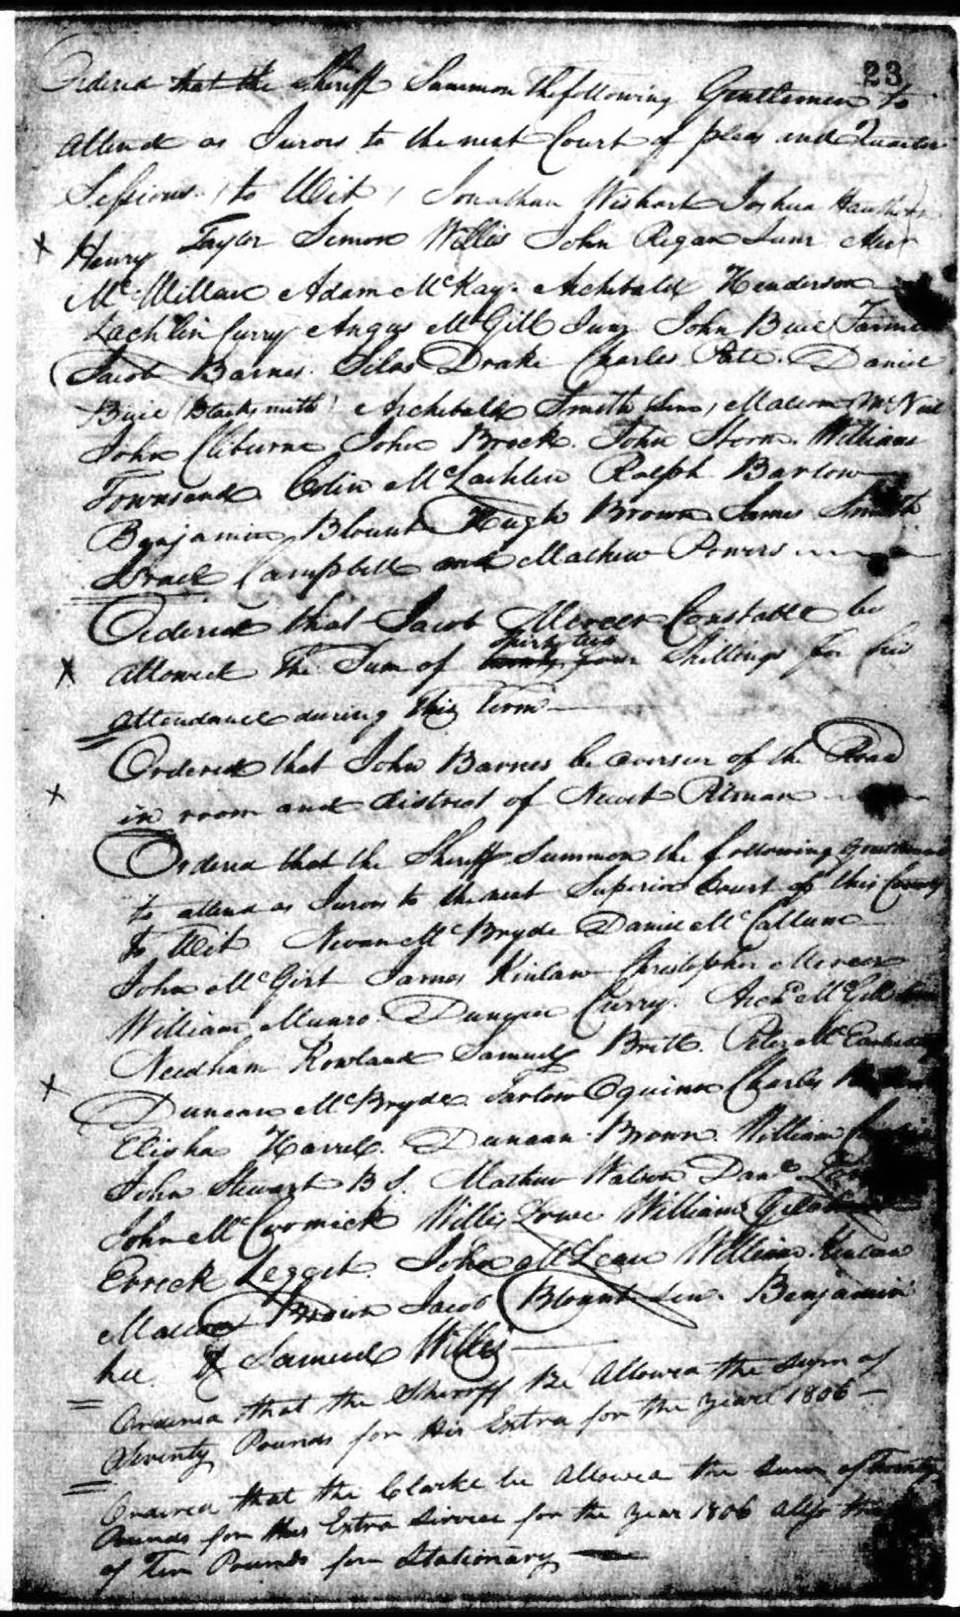 23
Ordered that the Sheriff Summon the following Gentlemen to
attend as Jurors to the next Court of pleas and Quarter
Sessions (to Wit) Jonathan Wishart Joshua
Henry Taylor Simon Willis John Regan Junr
McMillan Adam McKay Archibald Henderson
Lachlin Curry Angus McGill Junr John Buie (Farmer
Jacob Barnes Silas Drake Charles Pate Daniel
Buie (Blacksmith) Archibald Smith Senr, Malcom McNeil
John Cliburne John Brock John Storm William
Townsend Colin McLachlin Ralph Barlow
Benjamin Blount Hugh Brown James Smith
Israel Campbell and Mathew Powers
Ordered that Jacob Mercer Constable be
allowed the Sum of thirty two Shillings for his
attendance during this Term
Ordered that John Barnes be overseer of the Road
in room and district of Newet Pitman
Ordered that the Sheriff Summon the following Gentlemen
to attend as Jurors to the next Superior Court of this County
to Wit Nevan McBryde Daniel McCallum
John McGirt James Kinlaw Christopher Mercer
William Munro Duncan Curry Archd McGill
Needham Rowland Samuel Britt Peter
Duncan McBryde Tarlow Oquinn Charles
Elisha Harrel Duncan Brown William
John Stewart B S. Mathew Watson Danl
John McCormick Willis Lowe William
Errick Leggit John McLean William Kinlaw
Malcom Brown Jacob Blount Senr Benjamin
Lee & Samuel Willis
Ordered that the Sherriff Be Allowed the Sum of
Seventy Pounds for His Extra for the Yeare 1806
Ordered that the Clarke be Allowed the Sum of Twenty
Pounds for his Extra Service for the Year 1806 Also the
of Ten Pounds for Stationary